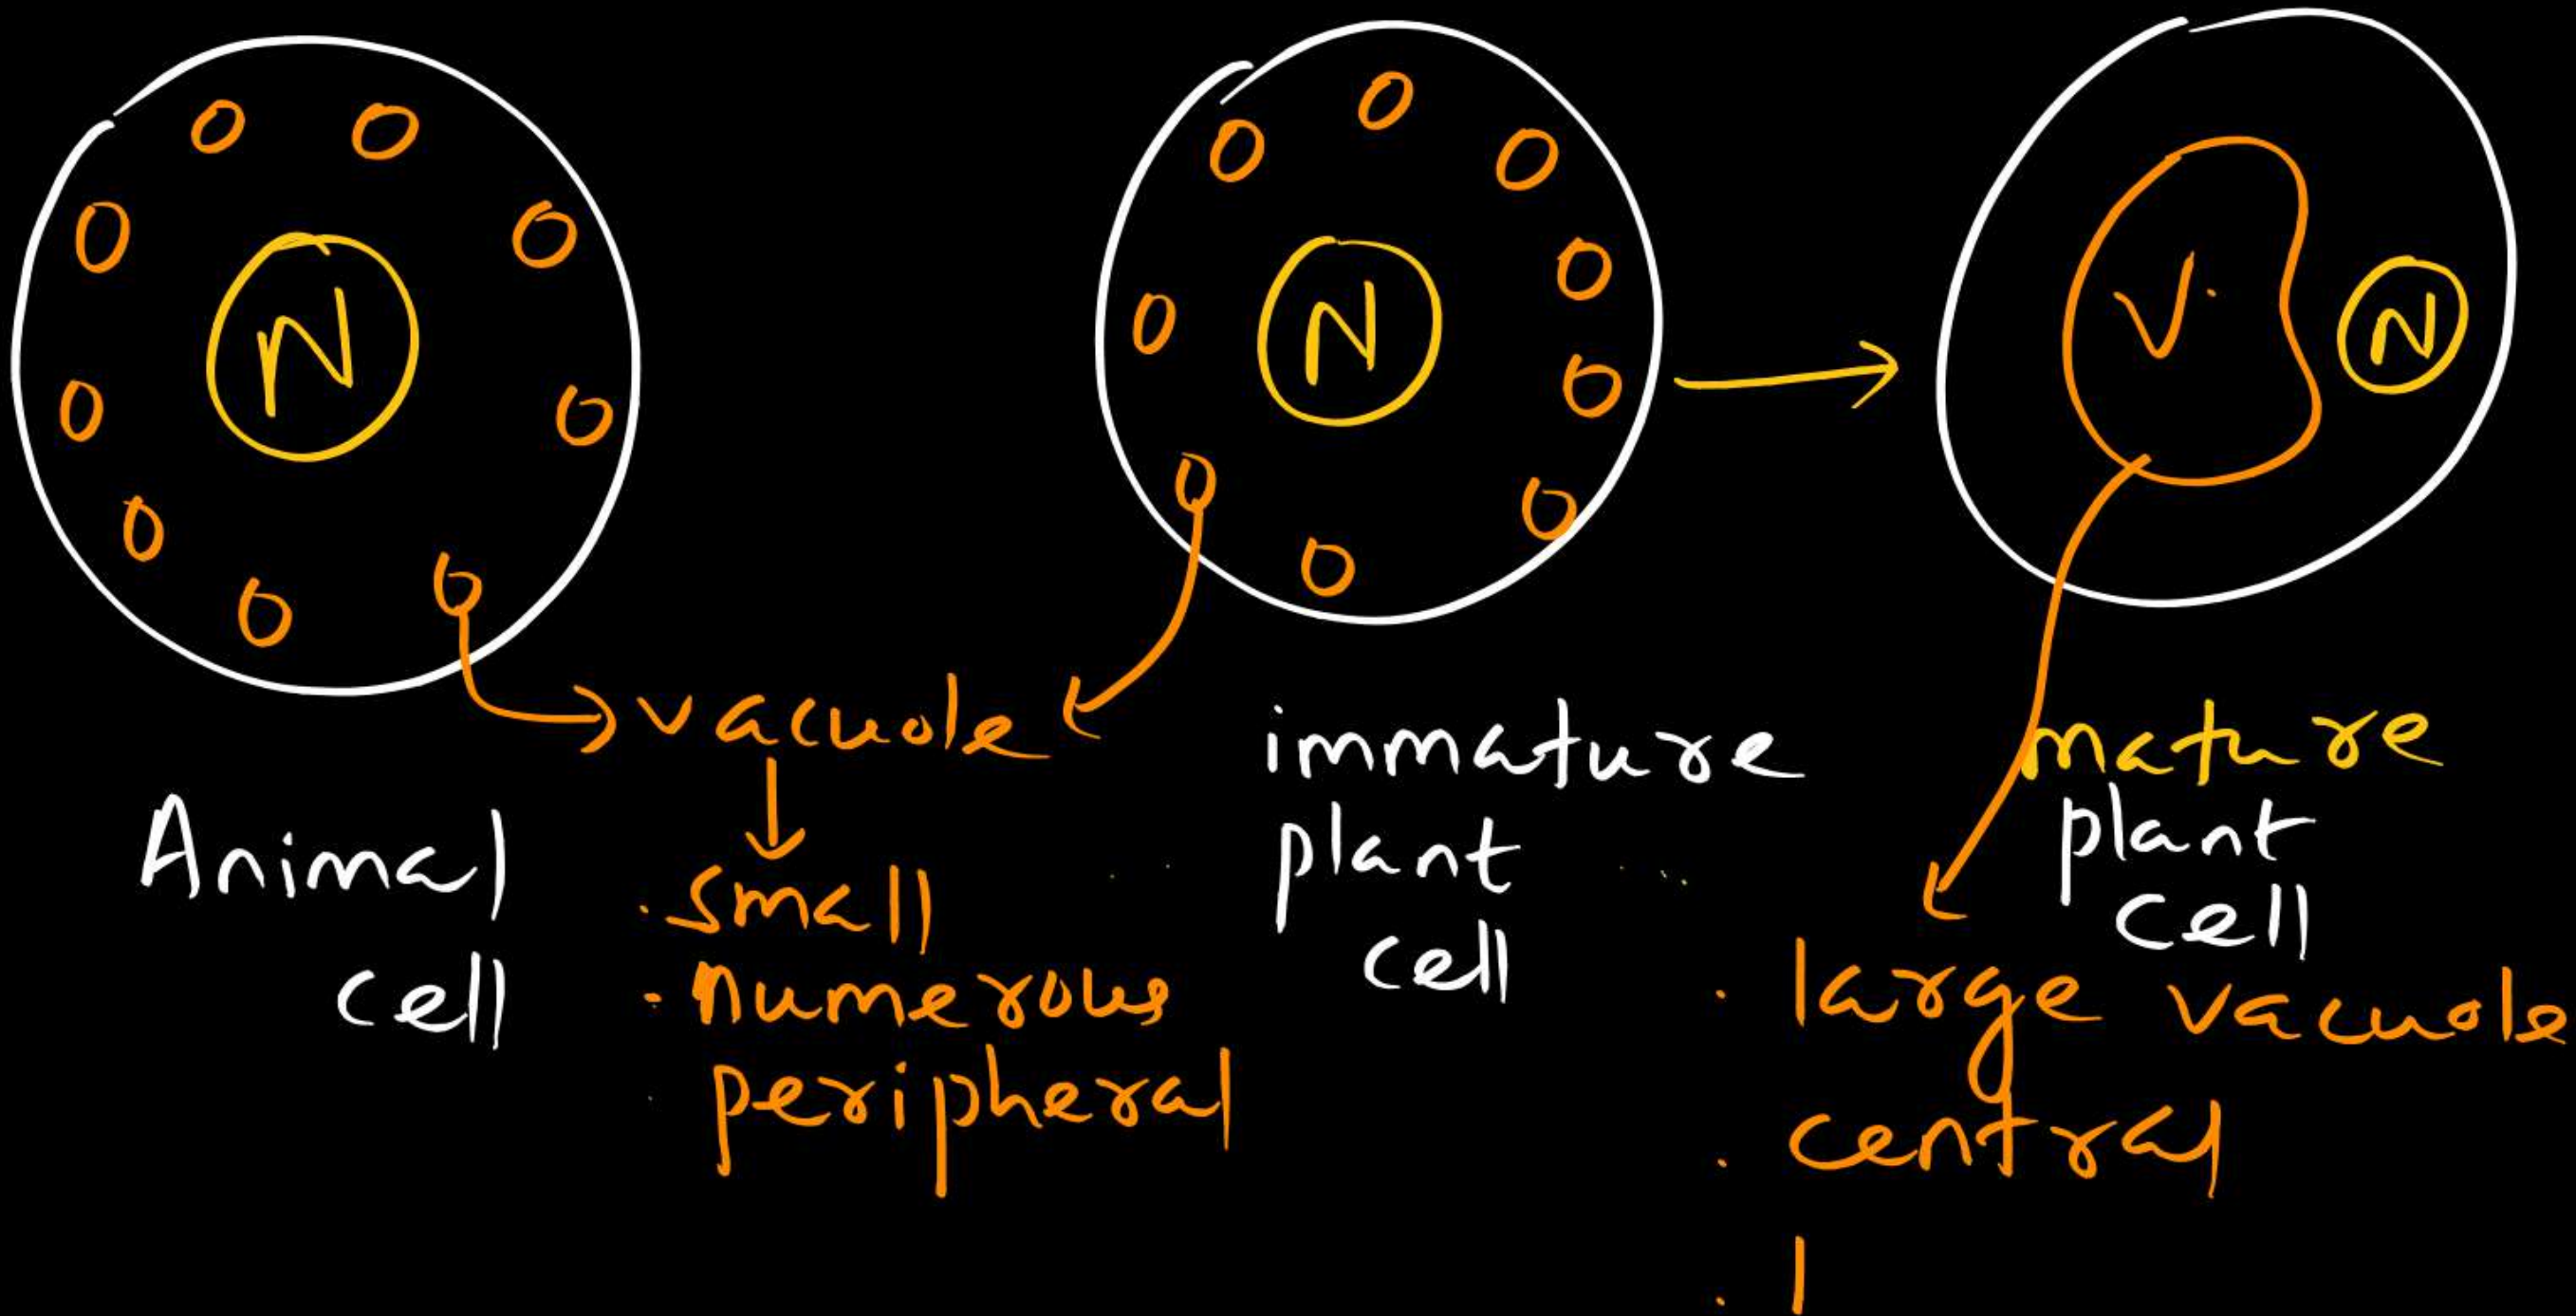 N
N
V.
N
vacuole
Animal
cell
. small
. numerous
. peripheral
immature
plant
cell
mature
plant
cell
. large vacuole
. central
. 1